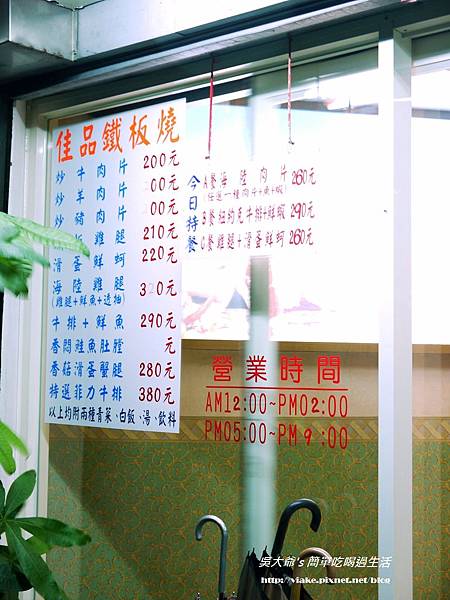 佳品鐵板燒
炒牛肉片 200元
炒羊肉片 00元
炒豬肉片 00元
雞腿 210元
滑蛋鮮蚵 220元
海陸雞腿 320元
(雞腿+鮮魚+透抽)
牛排+鮮魚 290元
香悶鮭魚肚膛 元
香菇滑蛋蟹腿 280元
特選菲力牛排 380元
以上均附兩種青菜、白飯、湯、飲料
今日特餐
A餐海陸肉片 260元
(任選一種肉片+魚+蝦)
B餐紐約克牛排+鮮蝦 290元
C餐雞腿+滑蛋鮮蚵 260元
營業時間
AM12:00~PM02:00
PM05:00~PM 9:00
吳大爺's 簡單吃喝過生活
http://viake.pixnet.net/blog